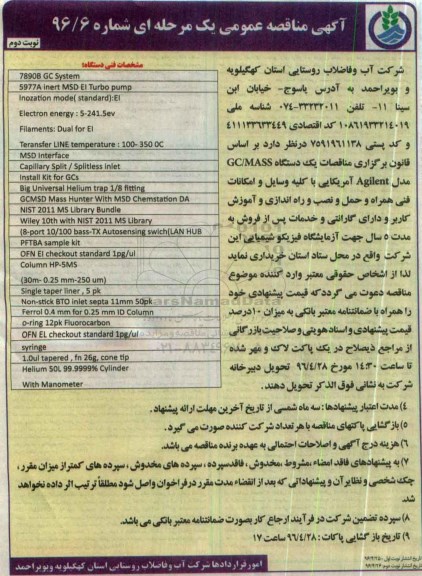 آگهی مناقصه عمومی یک مرحله ای شماره ۹۶/۶
نوبت دوم
شرکت آب وفاضلاب روستایی استان کهگیلویه
و بویراحمد به آدرس یاسوج- خیابان ابن
سینا ۱۱- تلفن ۳۳۲۳۲۰۱۱-۰۷۴ شناسه ملی
۱۰۸۶۱۹۳۳۲۱۴۰۱۹ کد اقتصادی ۴۱۱۱۳۳۶۳۳۴۴۹
و کد پستی ۷۵۹۱۹۶۱۱۳۸ درنظر دارد بر اساس
قانون برگزاری مناقصات یک دستگاه GC/MASS
مدل Agilent آمریکایی با کلیه وسایل و امکانات
فنی همراه و حمل و نصب و راه اندازی و آموزش
کاربر و دارای گارانتی و خدمات پس از فروش به
مدت ۵ سال جهت آزمایشگاه فیزیکو شیمیایی این
شرکت واقع در محل ستاد استان خریداری نماید
لذا از اشخاص حقوقی معتبر وارد کننده موضوع
مناقصه دعوت می گردد که قیمت پیشنهادی خود
را همراه با ضمانتنامه معتبر بانکی به میزان ۱۰درصد
قیمت پیشنهادی و اسناد هویتی و صلاحیت بازرگانی
از مراجع ذیصلاح در یک پاکت لاک و مهر شده
تا ساعت ۱۴:۳۰ مورخ ۹۶/۴/۲۸ تحویل دبیرخانه
شرکت به نشانی فوق الذکر تحویل دهند.
مشخصات فنی دستگاه:
7890B GC System
5977A inert MSD EI Turbo pump
Inozation mode( standard):EI
Electron energy : 5-241.5ev
Filaments: Dual for EI
Teransfer LINE temperature : 100- 350 0C
MSD Interface
Capillary Split / Splitless Inlet
Install Kit for GCs
Big Universal Helium trap 1/8 fitting
GCMSD Mass Hunter With MSD Chemstation DA
NIST 2011 MS Library Bundle
Wiley 10th with NIST 2011 MS Library
(8-port 10/100 bass-TX Autosensing swich(LAN HUB
PFTBA sample kit
OFN EI checkout standard 1pg/ul
Column HP-5MS
(30m- 0.25 mm-250 um)
Single taper liner , 5 pk
Non-stick BTO inlet septa 11mm 50pk
Ferrol 0.4 mm for 0.25 mm ID Column
o-ring 12pk Fluorocarbon
OFN EI checkout standard 1pg/ul
syringe
1.0ul tapered , fn 26g, cone tip
Helium 50L 99.9999% Cylinder
With Manometer
۴) مدت اعتبار پیشنهادها: سه ماه شمسی از تاریخ آخرین مهلت ارائه پیشنهاد.
۵) بازگشایی پاکتهای مناقصه با هر تعداد شرکت کننده صورت می گیرد.
۶) هزینه درج آگهی و اصلاحات احتمالی به عهده برنده مناقصه می باشد.
۷) به پیشنهادهای فاقد امضاء، مشروط، مخدوش، فاقدسپرده، سپرده های مخدوش، سپرده های کمتر از میزان مقرر،
چک شخصی و نظایر آن و پیشنهاداتی که بعد از انقضاء مدت مقرر در فراخوان واصل شود مطلقاً ترتیب اثر داده نخواهد
شد.
۸) سپرده تضمین شرکت در فرآیند ارجاع کار بصورت ضمانتنامه معتبر بانکی می باشد.
۹) تاریخ باز گشایی پاکات: ۹۶/۴/۲۸ ساعت ۱۷
امور قراردادها شرکت آب وفاضلاب روستایی استان کهگیلویه وبویراحمد